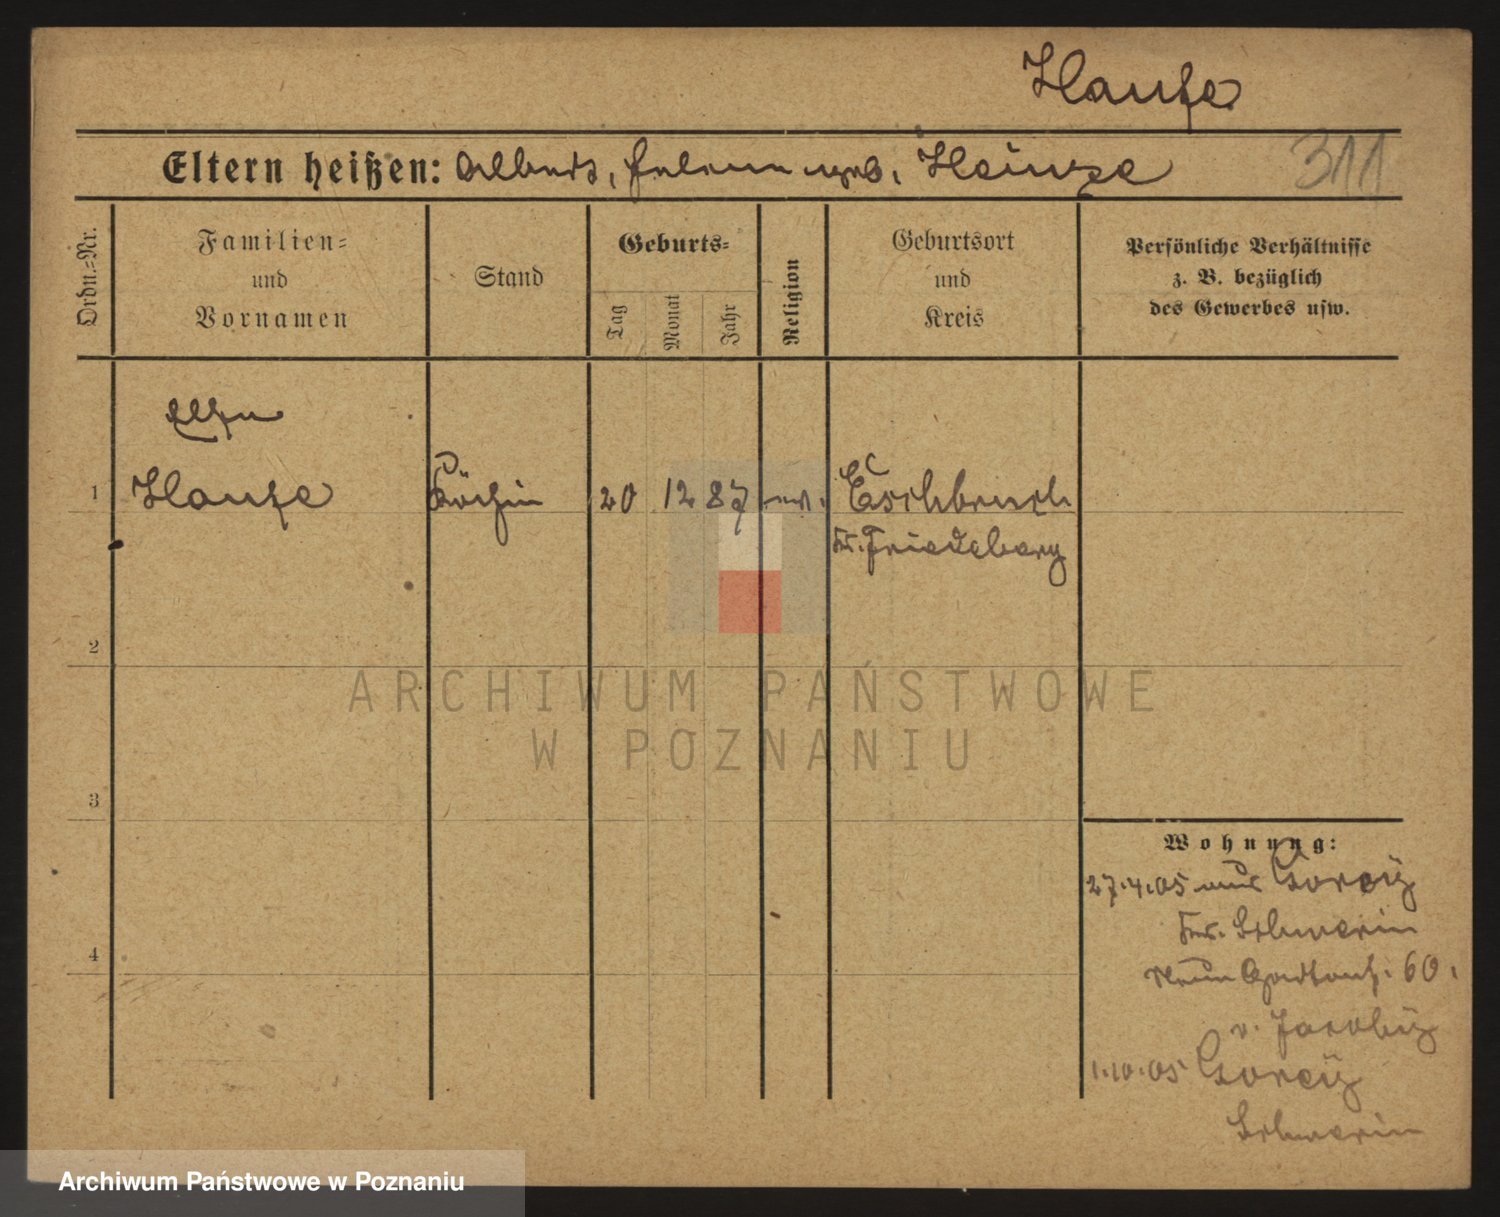 Haufe
Eltern heißen: Albert, Helene geb. Heinze
311
Ordn.=Nr.
Familien=
und
Vornamen
Stand
Geburts=
Tag
Monat
Jahr
Religion
Geburtsort
und
Kreis
Persönliche Verhältnisse
z. B. bezüglich
des Gewerbes usw.
1
Haufe
Köchin
20
12
87
ev.
Eschbruch
Kr. Friedeberg
2
3
4
Wohnung:
27.4.05 aus Gorcÿ
Kr. Schwerin
Neue Gartenst. 60.
v. Jacobÿ
1.10.05 Gorcÿ
Schwerin
ARCHIWUM PAŃSTWOWE
W POZNANIU
Archiwum Państwowe w Poznaniu